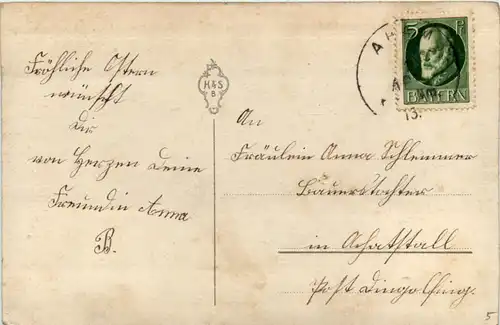 Fröhliche Ostern
wünscht
Dir
von Herzen Deine
Freundin Anna
B.
H & S
B
5 Pf
BAYERN
13.
An
Fräulein Anna Schlemmer
Bauerstochter
in Achatstall
Post Dingolfing.
5